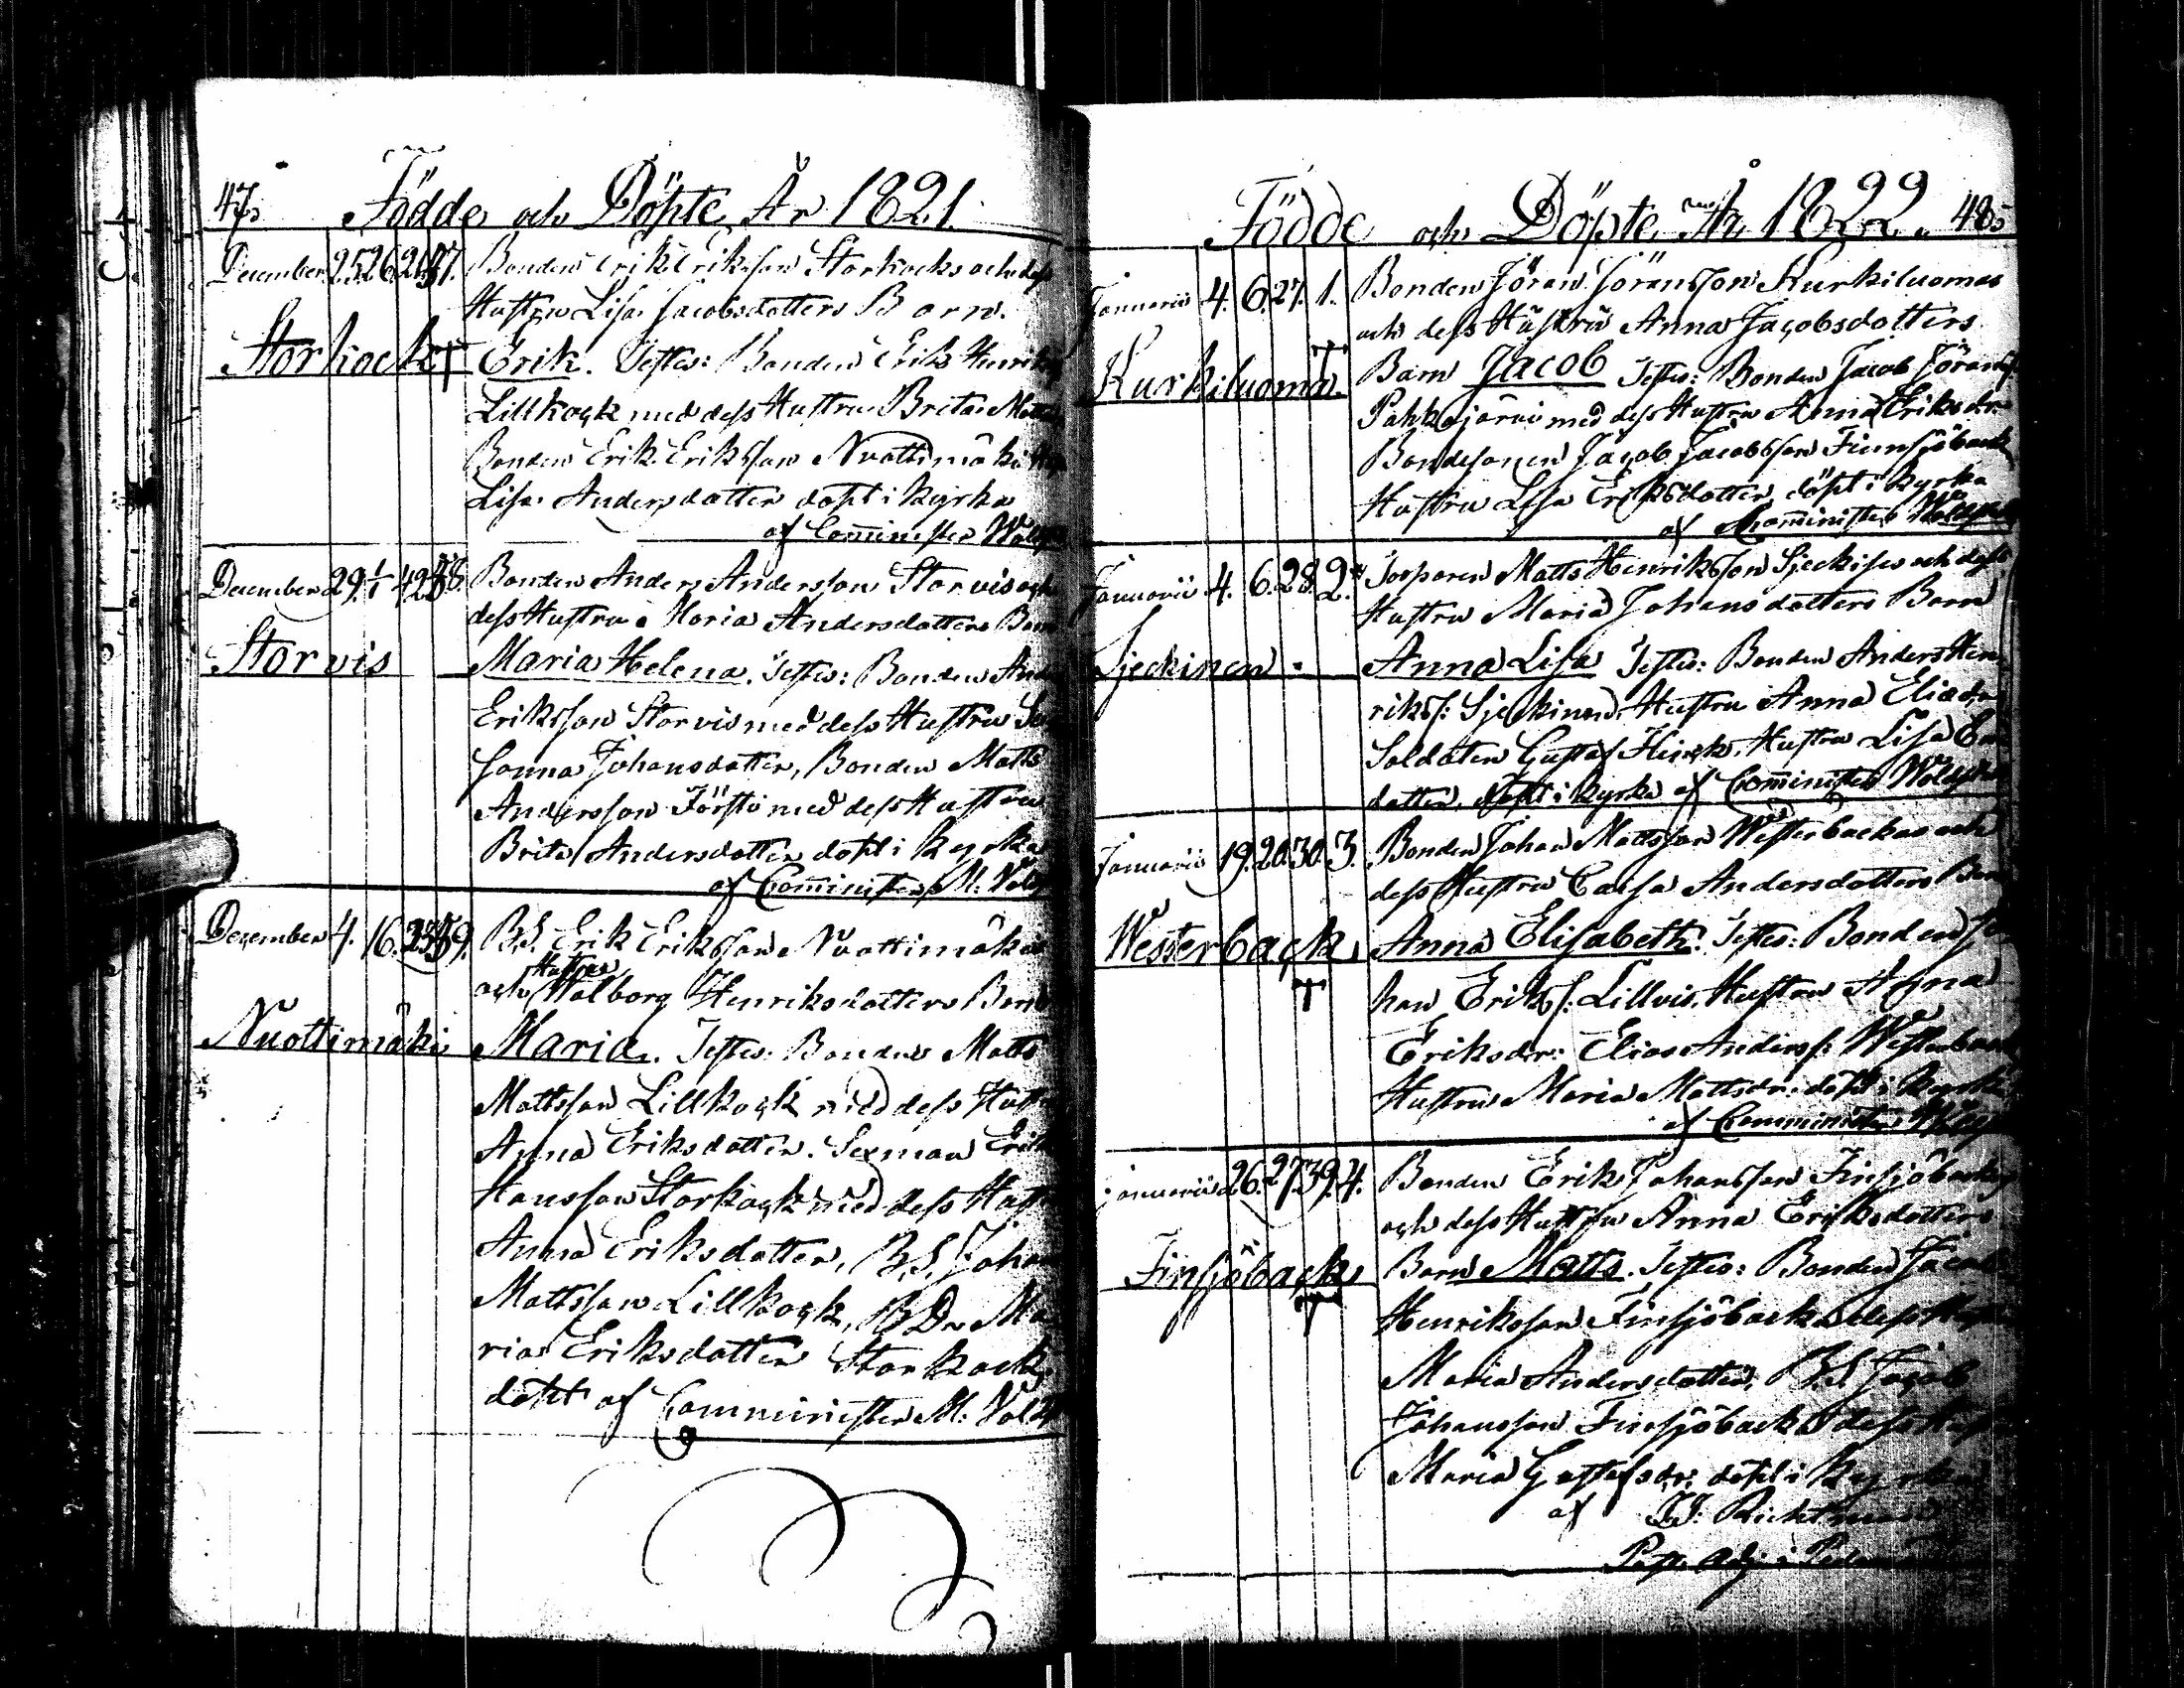 47.
Födde och Döpte År 1821.
December 25. 26. 26. 57. Bonden Erik Eriksson Storkocks och dess
Hustru Lisa Jacobsdotters Barn.
Storkock Erik. Testes: Bonden Erik Henriks
Lillkock med dess Hustru Brita Matts
Bonden Erik Eriksson Nuottimäki
Lisa Andersdotter döpt i kyrka
af Comminister
December 29. 1/1 42. 58. Bonden Anders Andersson Storvis och
dess Hustru Maria Andersdotters Barn
Storvis Maria Helena. Testes: Bonden
Eriksson Storvis med dess Hustru
sanna Johansdotter, Bonden Matts
Andersson Försti med dess Hustru
Brita Andersdotter döpt i kyrka
af Comminister M.
December 4. 16. 25. 59. B.S. Erik Eriksson Nuottimäki
och Hustru Walborg Henriksdotters Barn
Nuottimäki Maria. Testes: Bonden Matts
Mattsson Lillkock med dess Hustru
Anna Eriksdotter. Sexman Erik
Hansson Storkock med dess Hustru
Anna Eriksdotter, B.S. Johan
Mattsson Lillkock, B.Dr Ma
ria Eriksdotter Storkock,
döpt af Comminister M:
Födde och Döpte År 1822. 48.
Januarii 4. 6. 27. 1. Bonden Jöran Jöransson Kurkiluomas
och dess Hustru Anna Jacobsdotters
Kurkiluoma. Barn Jacob Testes: Bonden Jacob Jörans
Pahkajärvi med dess Hustru Anna Eriksdr
Bondesonen Jacob Jacobsson Finnsjöback
Hustru Lisa Eriksdotter, döpt i kyrka
af Comminister
Januarii 4. 6. 28. 2. Torparen Matts Henriksson Sjeckises och dess
Hustru Maria Johansdotters Barn
Sjeckinen Anna Lisa Testes: Bonden Anders Hen
rikss: Sjeckinen, Hustru Anna Eliædr
Soldaten Gustaf Hinck, Hustru Lisa
dotter, döpt i kyrka af Comminister
Januarii 19. 20. 30. 3. Bonden Johan Mattsson Westerbackas och
dess Hustru Caisa Andersdotters Barn
Westerback Anna Elisabeth. Testes: Bonden Jo
han Eriks: Lillvis, Hustru Anna
Eriksdr: Elias Anderss: Westerback
Hustru Maria Mattsdr: döpt i kyrka
af Comminister
Januarii 26. 27. 39. 4. Bonden Erik Johansson Finsjöbacks
och dess Hustru Anna Eriksdotters
Finsjöback Barn Matts. Testes: Bonden Jacob
Henriksson Finsjöback dess
Maria Andersdotter, B.S. Jacob
Johansson Finsjöback dess
Maria Gustafsdr: döpt i kyrka
af